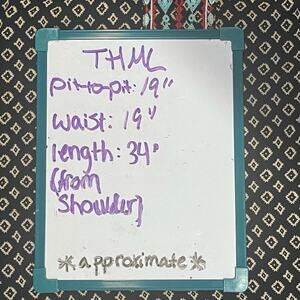 THML
pit-to-pit: 19"
waist: 19"
length: 34"
(from
shoulder)
* approximate *